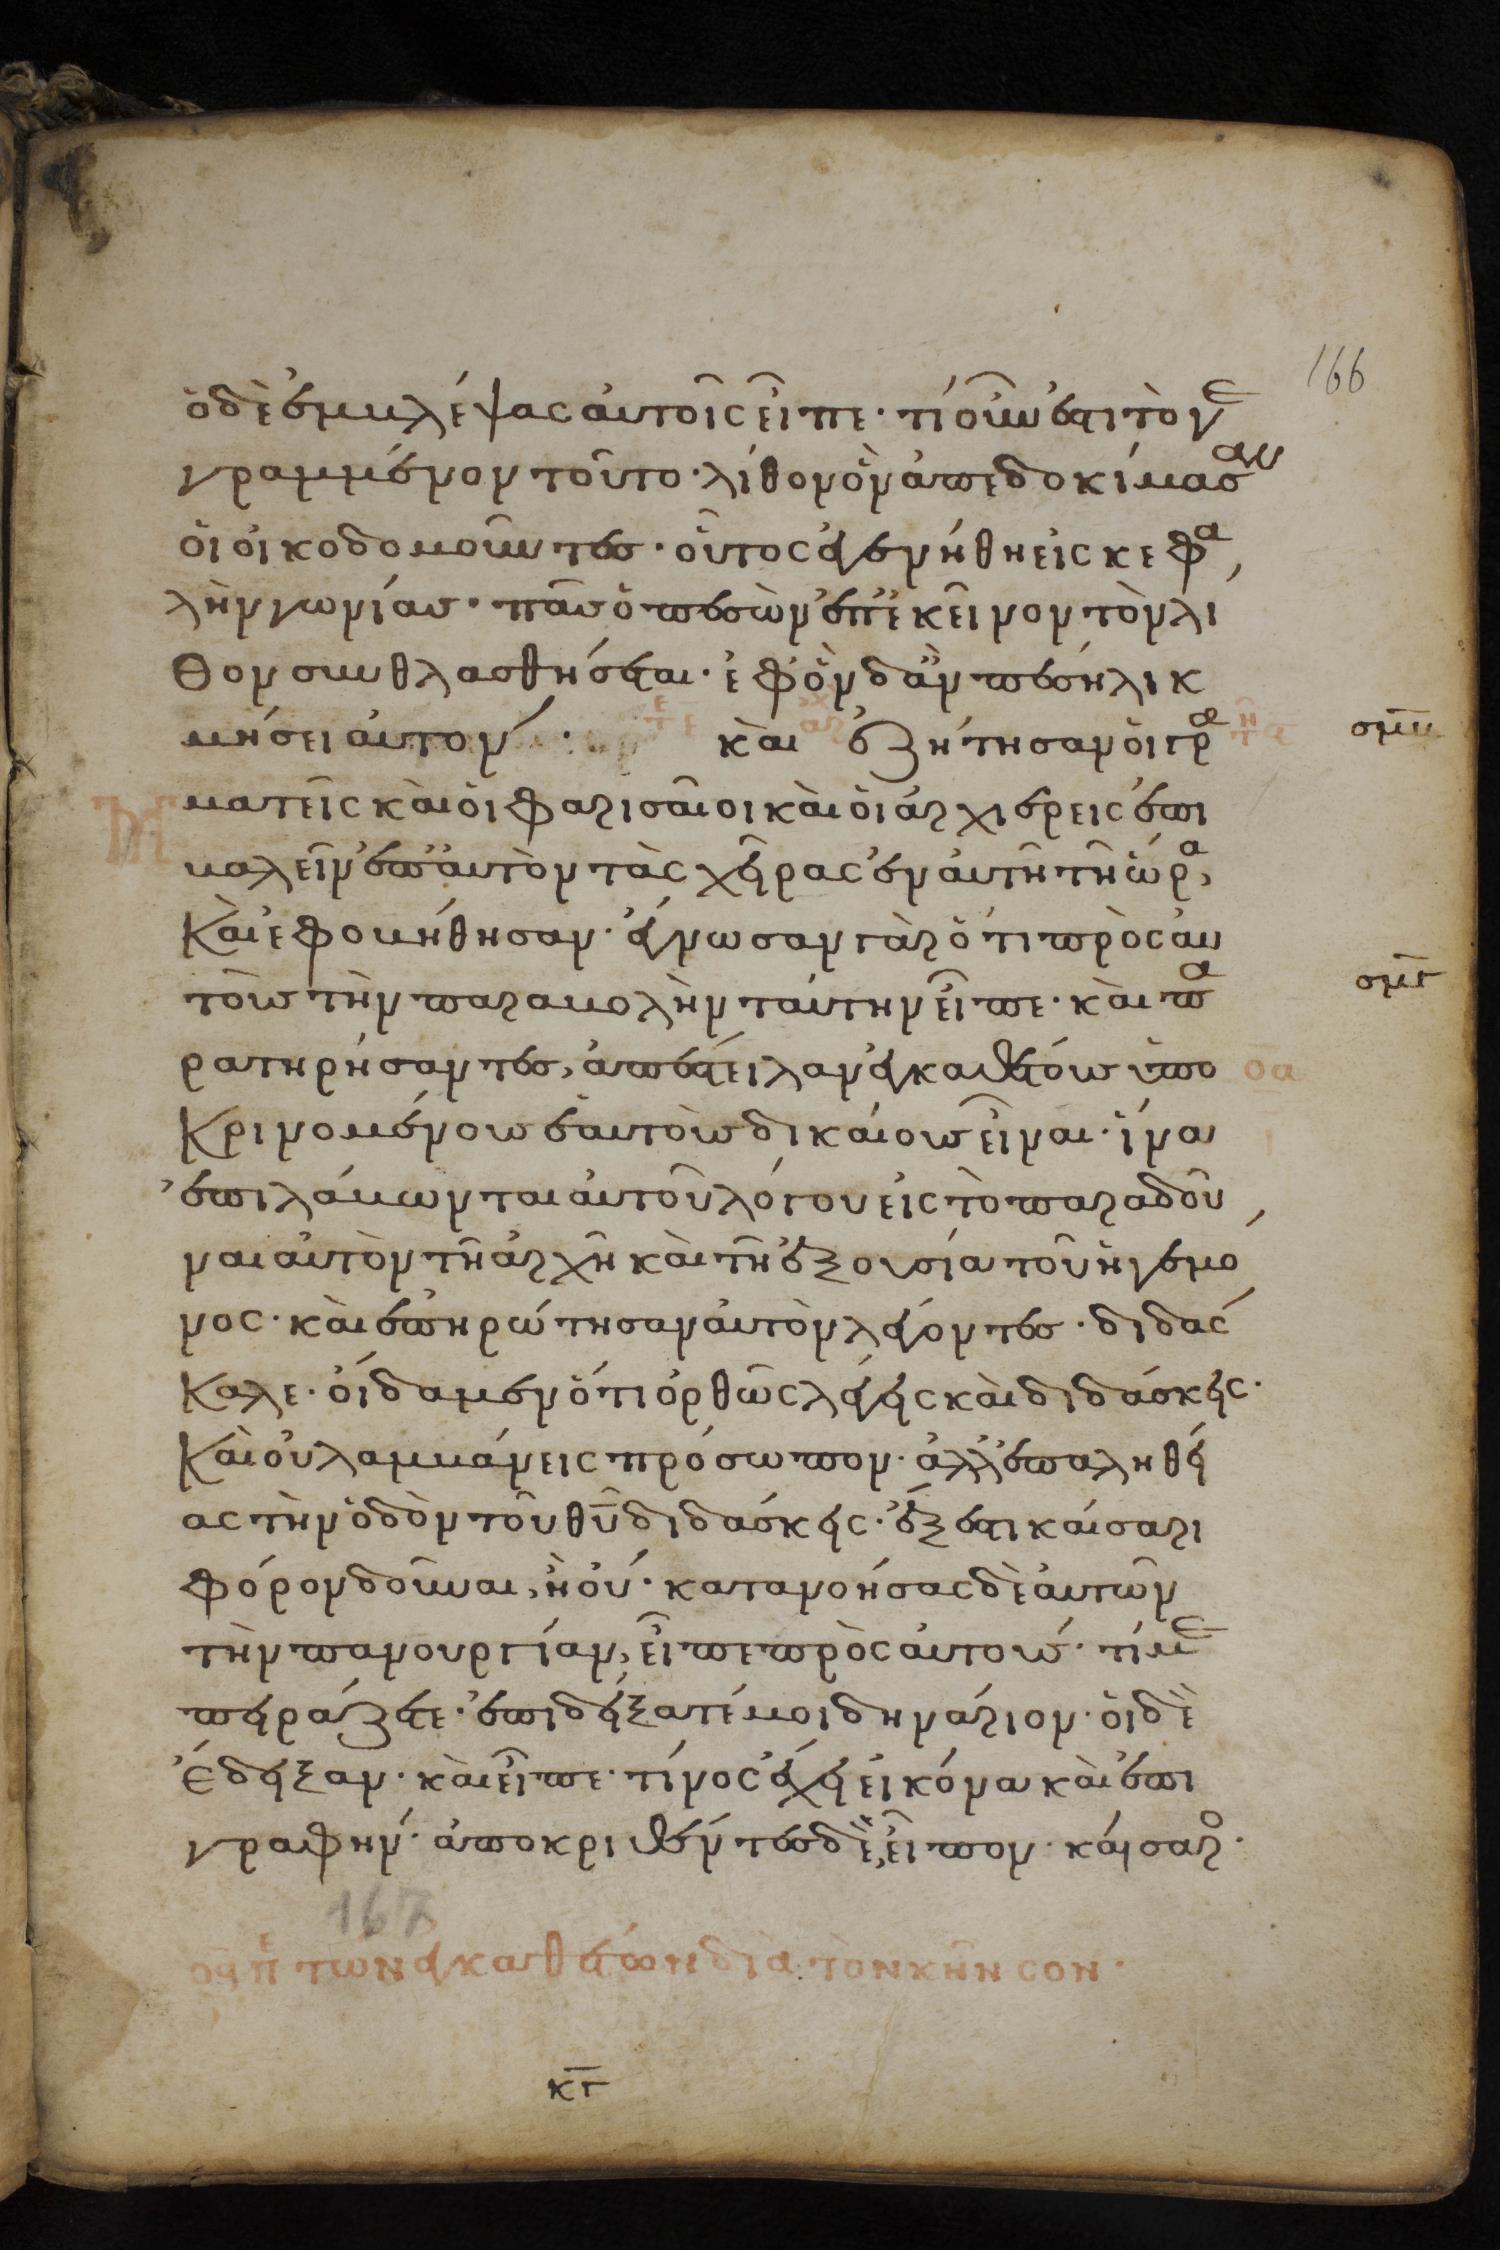 166
ὁ δὲ ἐμβλέψας αὐτοῖς εἶπε· τί οὖν ἐστι τὸ γε
γραμμένον τοῦτο· λίθον ὃν ἀπεδοκίμασαν
οἱ οἰκοδομοῦντες· οὗτος ἐγενήθη εἰς κεφα
λὴν γωνίας· πᾶς ὁ πεσὼν ἐπ' ἐκεῖνον τὸν λί
θον συνθλασθήσεται· ἐφ' ὃν δ' ἂν πέσῃ λικ
μήσει αὐτόν· καὶ ἐζήτησαν οἱ γρα
σμβ
ματεῖς καὶ οἱ φαρισαῖοι καὶ οἱ ἀρχιερεῖς ἐπι
βαλεῖν ἐπ' αὐτὸν τὰς χεῖρας ἐν αὐτῇ τῇ ὥρα,
καὶ ἐφοβήθησαν· ἔγνωσαν γὰρ ὅτι πρὸς αὐ
τοὺς τὴν παραβολὴν ταύτην εἶπε· καὶ πα
σμγ
ρατηρήσαντες, ἀπέστειλαν ἐγκαθέτους ὑπο
οα
κρινομένους ἑαυτοὺς δικαίους εἶναι· ἵνα
ἐπιλάβωνται αὐτοῦ λόγου εἰς τὸ παραδοῦ
ναι αὐτὸν τῇ ἀρχῇ καὶ τῇ ἐξουσία τοῦ ἡγεμό
νος· καὶ ἐπηρώτησαν αὐτὸν λέγοντες· διδάσ
καλε· οἴδαμεν ὅτι ὀρθῶς λέγεις καὶ διδάσκεις·
καὶ οὐ λαμβάνεις πρόσωπον· ἀλλ' ἐπ' ἀληθεί
ας τὴν ὁδὸν τοῦ θυ διδάσκεις· ἔξεστι καίσαρι
φόρον δοῦναι, ἢ οὔ· κατανοήσας δὲ αὐτῶν
τὴν πανουργίαν, εἶπε πρὸς αὐτούς· τί με
πειράζετε· ἐπιδείξατέ μοι δηνάριον· οἱ δὲ
ἔδειξαν· καὶ εἶπε· τίνος ἔχει εἰκόνα καὶ ἐπι
γραφήν· ἀποκριθέντες δὲ, εἶπον· καίσαρο·
167
τῶν ἐγκαθέτων διὰ τὸν κῆνσον·
κγ